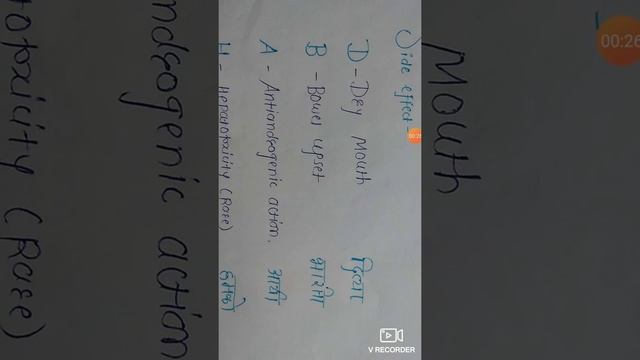 Side effect
D - Dry Mouth
B - Bowel upset
A - Antiandrogenic action.
H - Hepatotoxicity (Rare)
Mouth
ndrogenic action
totoxicity (Rare)
00:26
V RECORDER